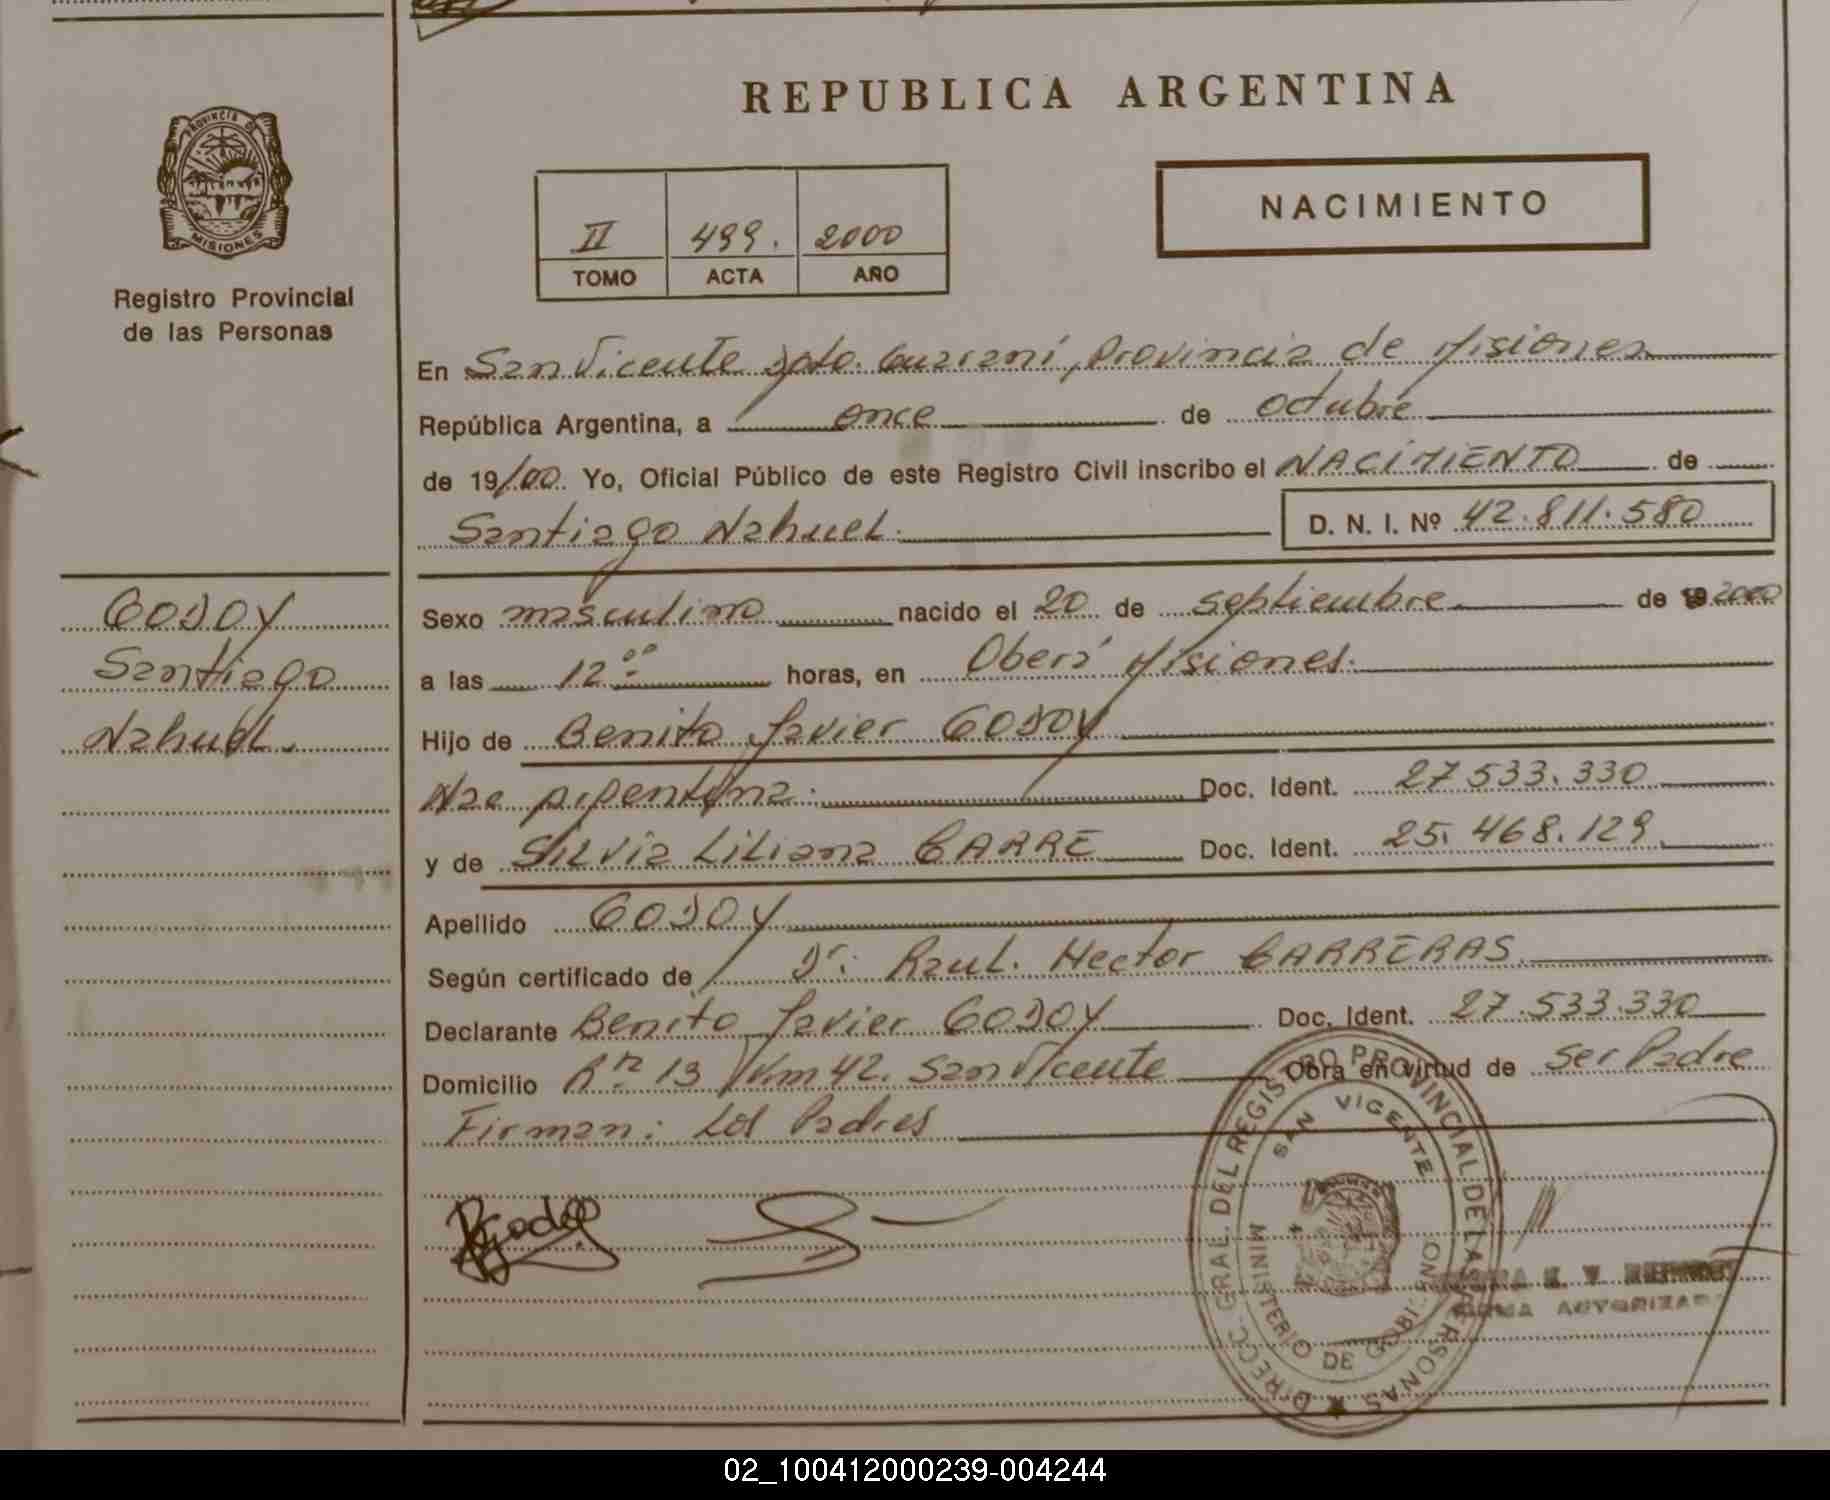 REPUBLICA ARGENTINA
PROVINCIA DE
MISIONES
Registro Provincial
de las Personas
II 499. 2000
TOMO ACTA AÑO
NACIMIENTO
En San Vicente Dpto. Guaraní, Provincia de Misiones
República Argentina, a once de octubre
de 19/00. Yo, Oficial Público de este Registro Civil inscribo el NACIMIENTO de
Santiago Nahuel.
D. N. I. Nº 42.811.580
GODOY
Santiago
Nahuel.
Sexo masculino nacido el 20 de septiembre de 2000
a las 12 ºº horas, en Oberá Misiones.
Hijo de Benito Javier GODOY
Nac argentina. Doc. Ident. 27533.330
y de Silvia Liliana CARRE Doc. Ident. 25.468.129
Apellido GODOY
Según certificado de Dr. Raul. Hector CARRERAS.
Declarante Benito Javier GODOY Doc. Ident. 27.533.330
Domicilio 13 Km 42. San Vicente Obra en virtud de ser Padre
Firman: Los Padres
DIRECC. GRAL. DEL REGISTRO PROVINCIAL DE LAS PERSONAS
SAN VICENTE
MINISTERIO DE GOBIERNO
FIRMA AUTORIZADA
02_100412000239-004244